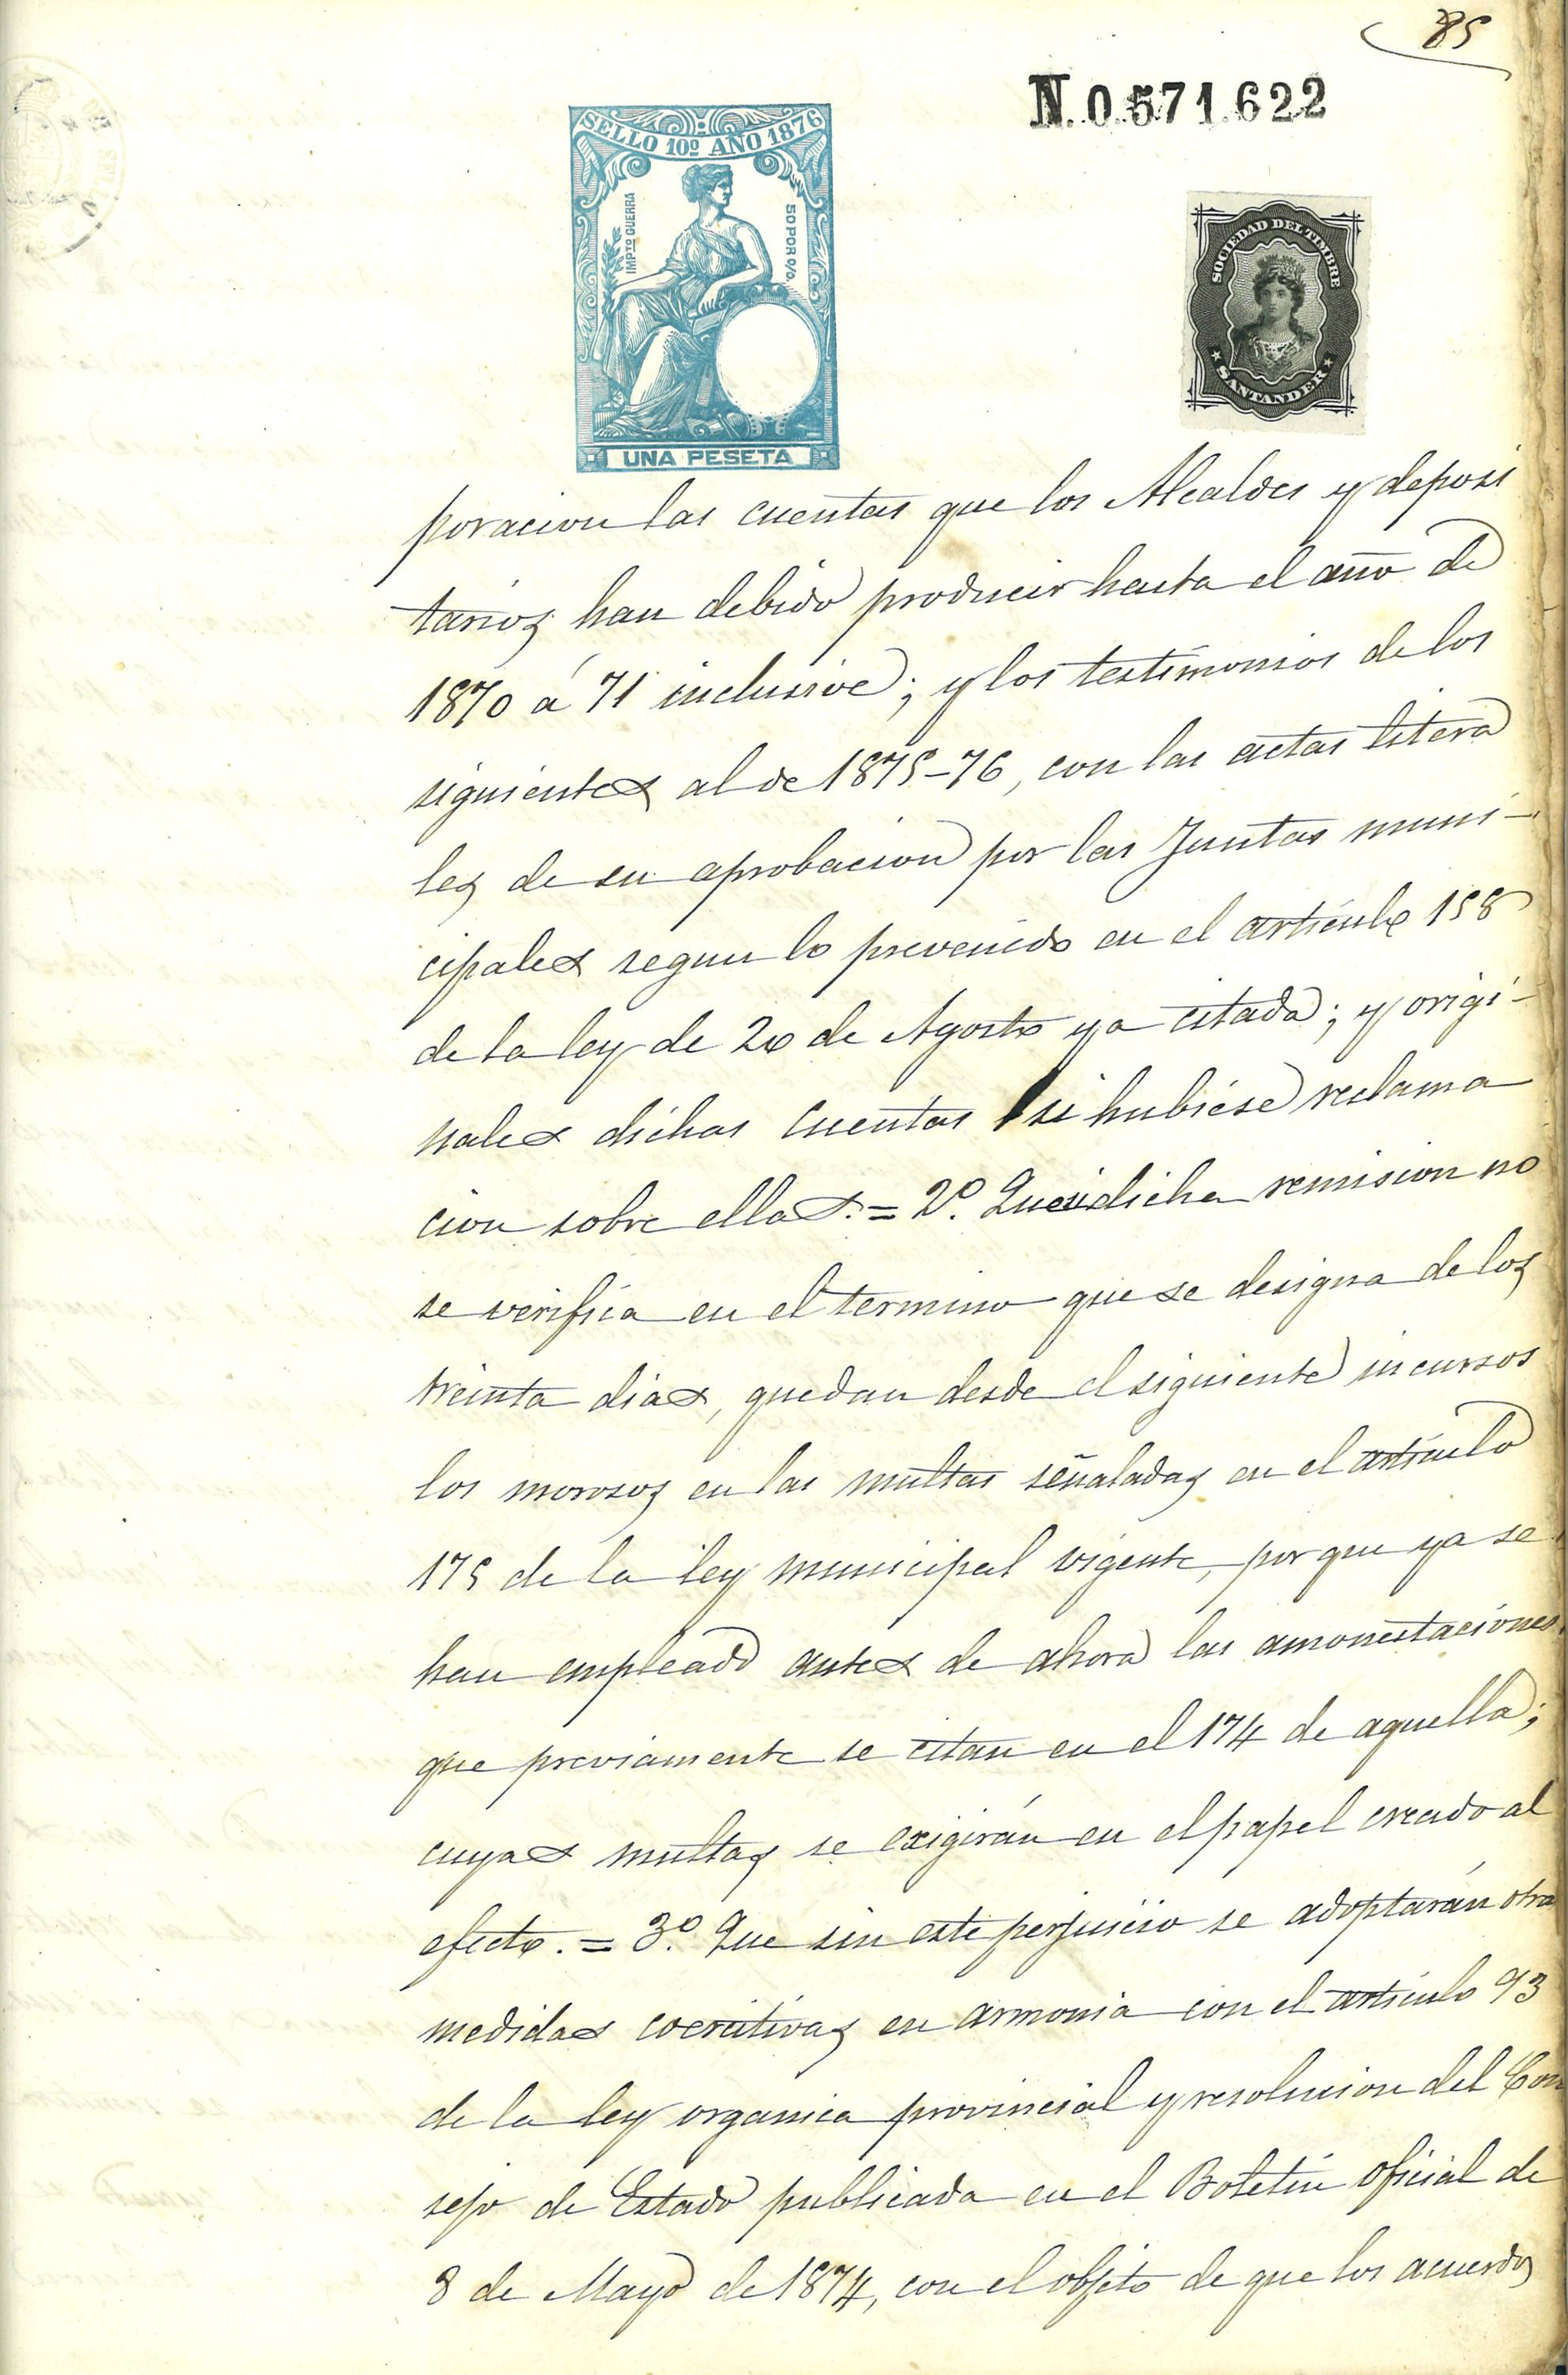 85
N. 0.571.622
SELLO 10º AÑO 1876
IMPTO GUERRA
50 POR 0/0.
UNA PESETA
SOCIEDAD DEL TIMBRE
SANTANDER
poracion las cuentas que los Alcaldes y deposi
tarios han debido producir hasta el año de
1870 á 71 inclusive; y los testimonios de los
siguientes al de 1875-76, con las actas litera
les de su aprobacion por las Juntas muni-
cipales segun lo prevenido en el articulo 158
de la ley de 20 de Agosto ya citada; y origi-
nales dichas cuentas si hubiese reclama
cion sobre ellas. = 2º. Que si dicha remision no
se verifica en el termino que se designa de los
treinta dias, quedan desde el siguiente incursos
los morosos en las multas señaladas en el artículo
175 de la ley municipal vigente, por que ya se
han empleado antes de ahora las amonestaciones
que previamente se citan en el 174 de aquella;
cuyas multas se exigirán en el papel creado al
efecto. = 3º. Que sin este perjuicio se adoptarán otra
medidas coercitivas en armonia con el artículo 93
de la ley organica provincial y resolucion del Con
sejo de Estado publicada en el Boletin oficial de
8 de Mayo de 1874, con el objeto de que los acuerdos